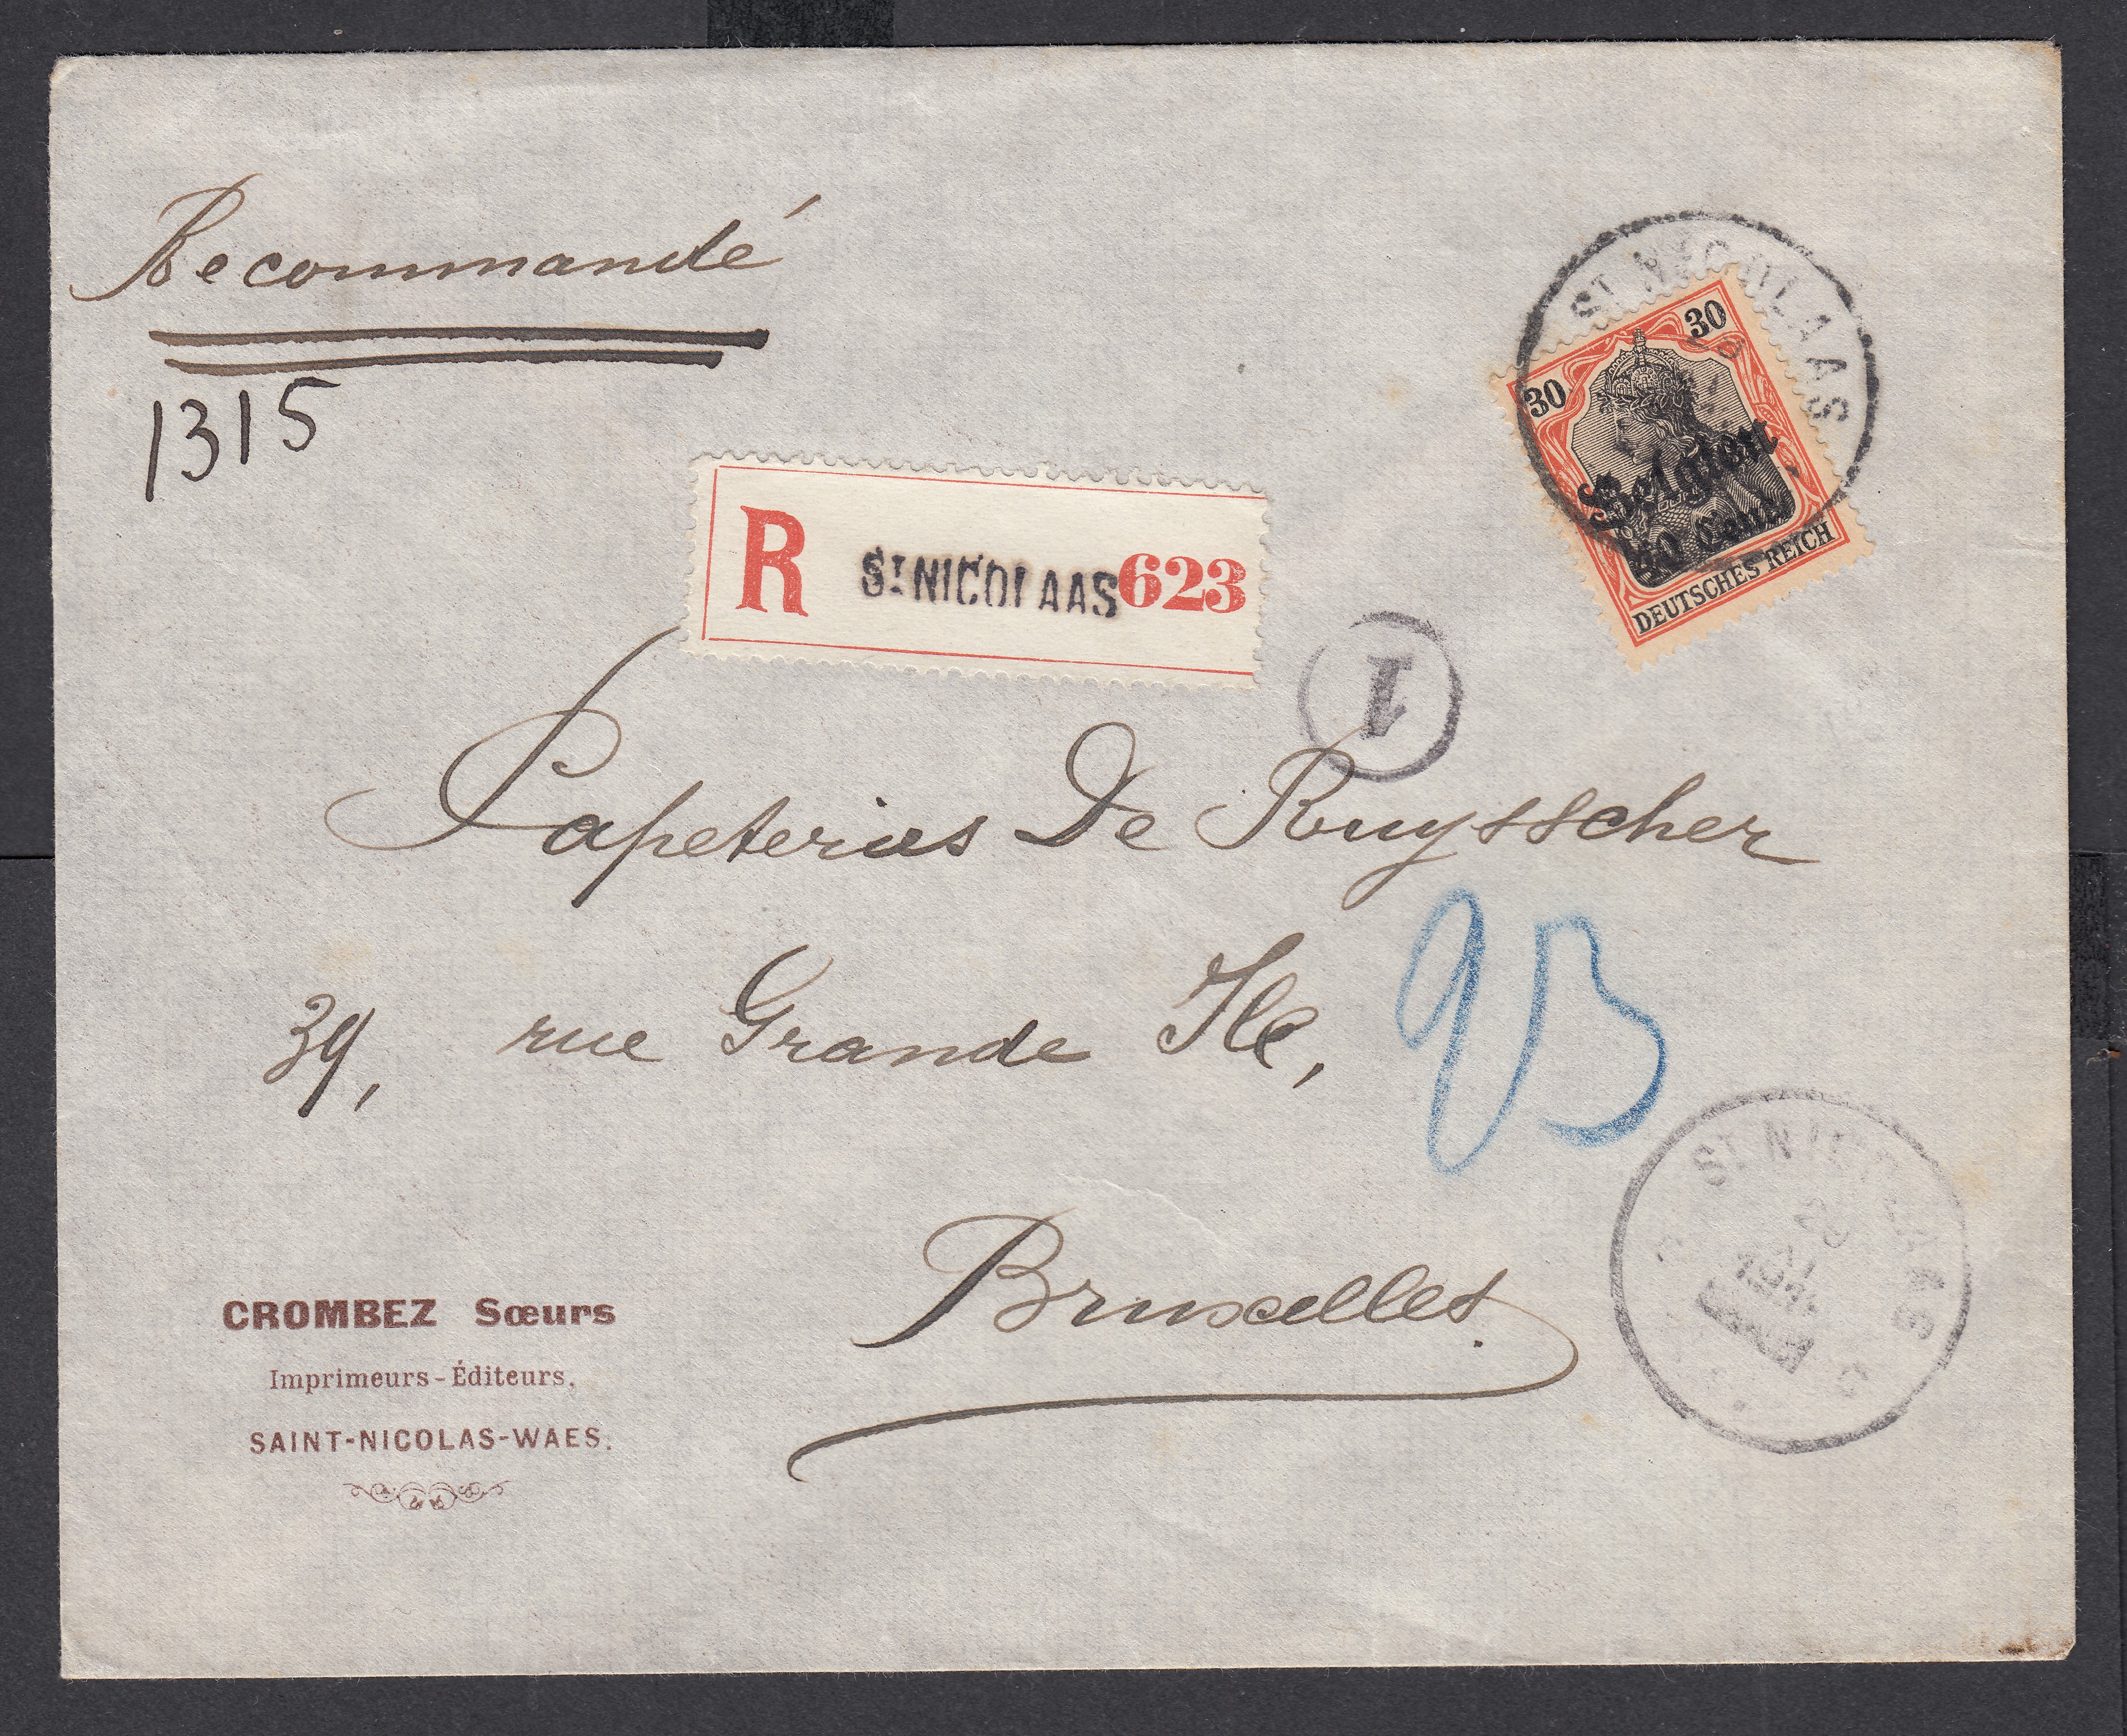 Recommandé
1315
ST NICOLAAS
30
30
Belgien
40 Cent.
DEUTSCHES REICH
R ST NICOLAAS 623
1
Papeteries De Ruysscher
39, rue Grande Ile,
Bruxelles
ST NICOLAAS
CROMBEZ Sœurs
Imprimeurs-Éditeurs.
SAINT-NICOLAS-WAES.